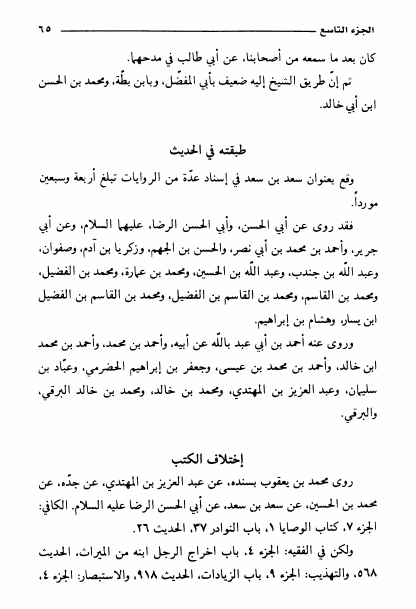 الجزء التاسع ٦٥
كان بعد ما سمعه من أصحابنا، عن أبي طالب في مدحهما.
ثم إنّ طريق الشيخ إليه ضعيف بأبي المفضّل، وبابن بطّة، ومحمد بن الحسن
ابن أبي خالد.
طبقته في الحديث
وقع بعنوان سعد بن سعد في إسناد عدّة من الروايات تبلغ أربعة وسبعين
مورداً.
فقد روى عن أبي الحسن، وأبي الحسن الرضا، عليهما السلام، وعن أبي
جرير، وأحمد بن محمد بن أبي نصر، والحسن بن الجهم، وزكريا بن آدم، وصفوان،
وعبد اللّه بن جندب، وعبد اللّه بن الحسين، ومحمد بن عمارة، ومحمد بن الفضيل،
ومحمد بن القاسم، ومحمد بن القاسم بن الفضيل، ومحمد بن القاسم بن الفضيل
ابن يسار، وهشام بن إبراهيم.
وروى عنه أحمد بن أبي عبد باللّه عن أبيه، وأحمد بن محمد، وأحمد بن محمد
ابن خالد، وأحمد بن محمد بن عيسى، وجعفر بن إبراهيم الحضرمي، وعبّاد بن
سليمان، وعبد العزيز بن المهتدي، ومحمد بن خالد، ومحمد بن خالد البرقي،
والبرقي.
إختلاف الكتب
روى محمد بن يعقوب بسنده، عن عبد العزيز بن المهتدي، عن جدّه، عن
محمد بن الحسين، عن سعد بن سعد، عن أبي الحسن الرضا عليه السلام. الكافي:
الجزء ٧، كتاب الوصايا ١، باب النوادر ٣٧، الحديث ٢٦.
ولكن في الفقيه: الجزء ٤، باب اخراج الرجل ابنه من الميراث، الحديث
٥٦٨، والتهذيب: الجزء ٩، باب الزيادات، الحديث ٩١٨، والاستبصار: الجزء ٤،